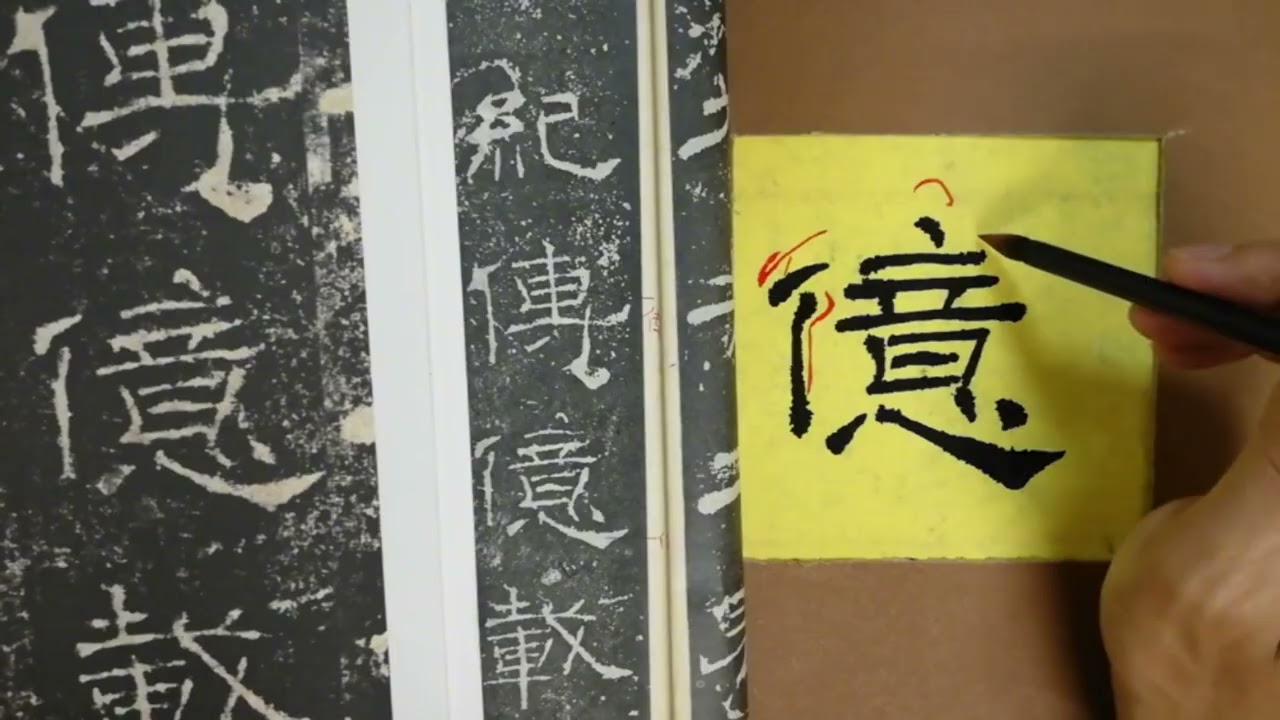 傳億載
紀傳億載
億